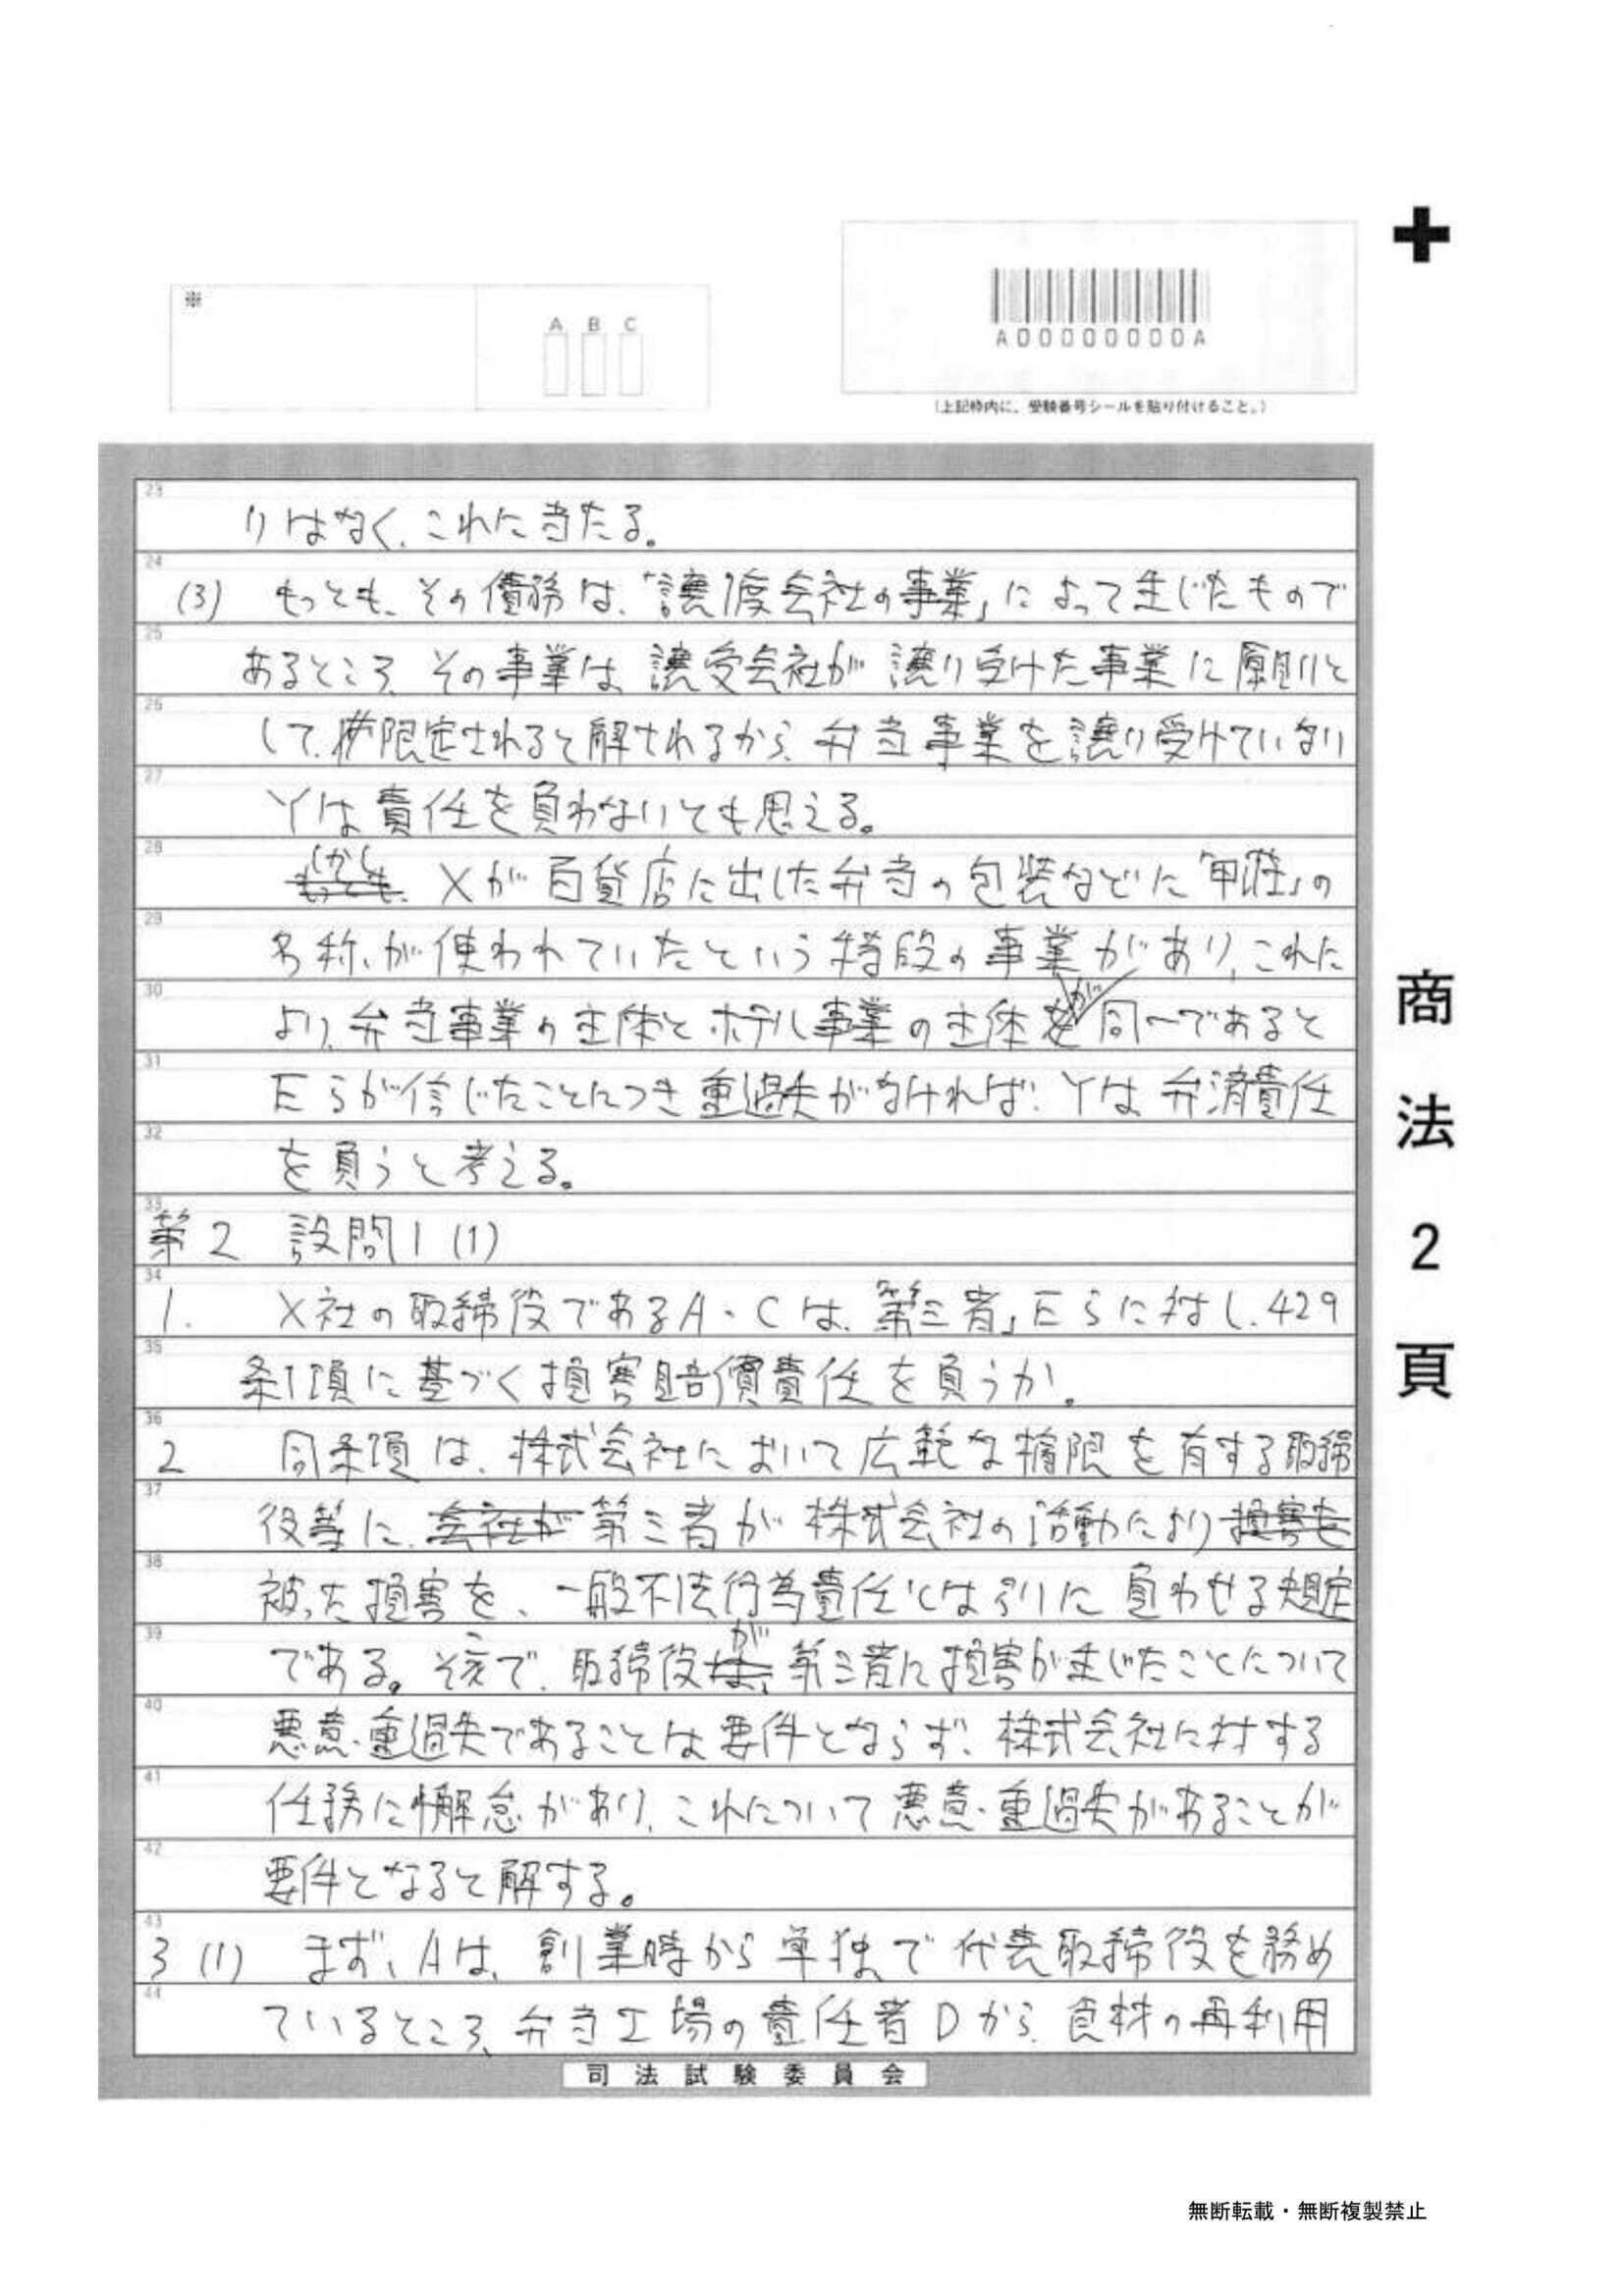 ※
A B C
A00000000A
(上記枠内に、受験番号シールを貼り付けること。)
23 りはなく、これに当たる。
24 (3) もっとも、その債務は、「譲渡会社の事業」によって生じたもので
25 あるところ、その事業は、譲受会社が譲り受けた事業に原則と
26 して、限定されると解されるから、弁当事業を譲り受けていない
27 Yは責任を負わないとも思える。
28 しかし、Xが百貨店に出した弁当の包装などに「甲荘」の
29 名称が使われていたという特段の事業があり、これに
30 より、弁当事業の主体とホテル事業の主体が同一であると
31 Eらが信じたことにつき重過失がなければ、Yは弁済責任
32 を負うと考える。
33 第2 設問1(1)
34 1. X社の取締役であるA・Cは、「第三者」Eらに対し、429
35 条1項に基づく損害賠償責任を負うか。
36 2 同条項は、株式会社において広範な権限を有する取締
37 役等に、第三者が株式会社の活動により
38 被った損害を、一般不法行為責任とは別に負わせる規定
39 である。そこで、取締役が第三者に損害が生じたことについて
40 悪意・重過失であることは要件とならず、株式会社に対する
41 任務に懈怠があり、これについて悪意・重過失があることが
42 要件となると解する。
43 3 (1) まず、Aは、創業時から単独で代表取締役を務め
44 ているところ、弁当工場の責任者Dから、食材の再利用
司法試験委員会
商法2頁
無断転載・無断複製禁止